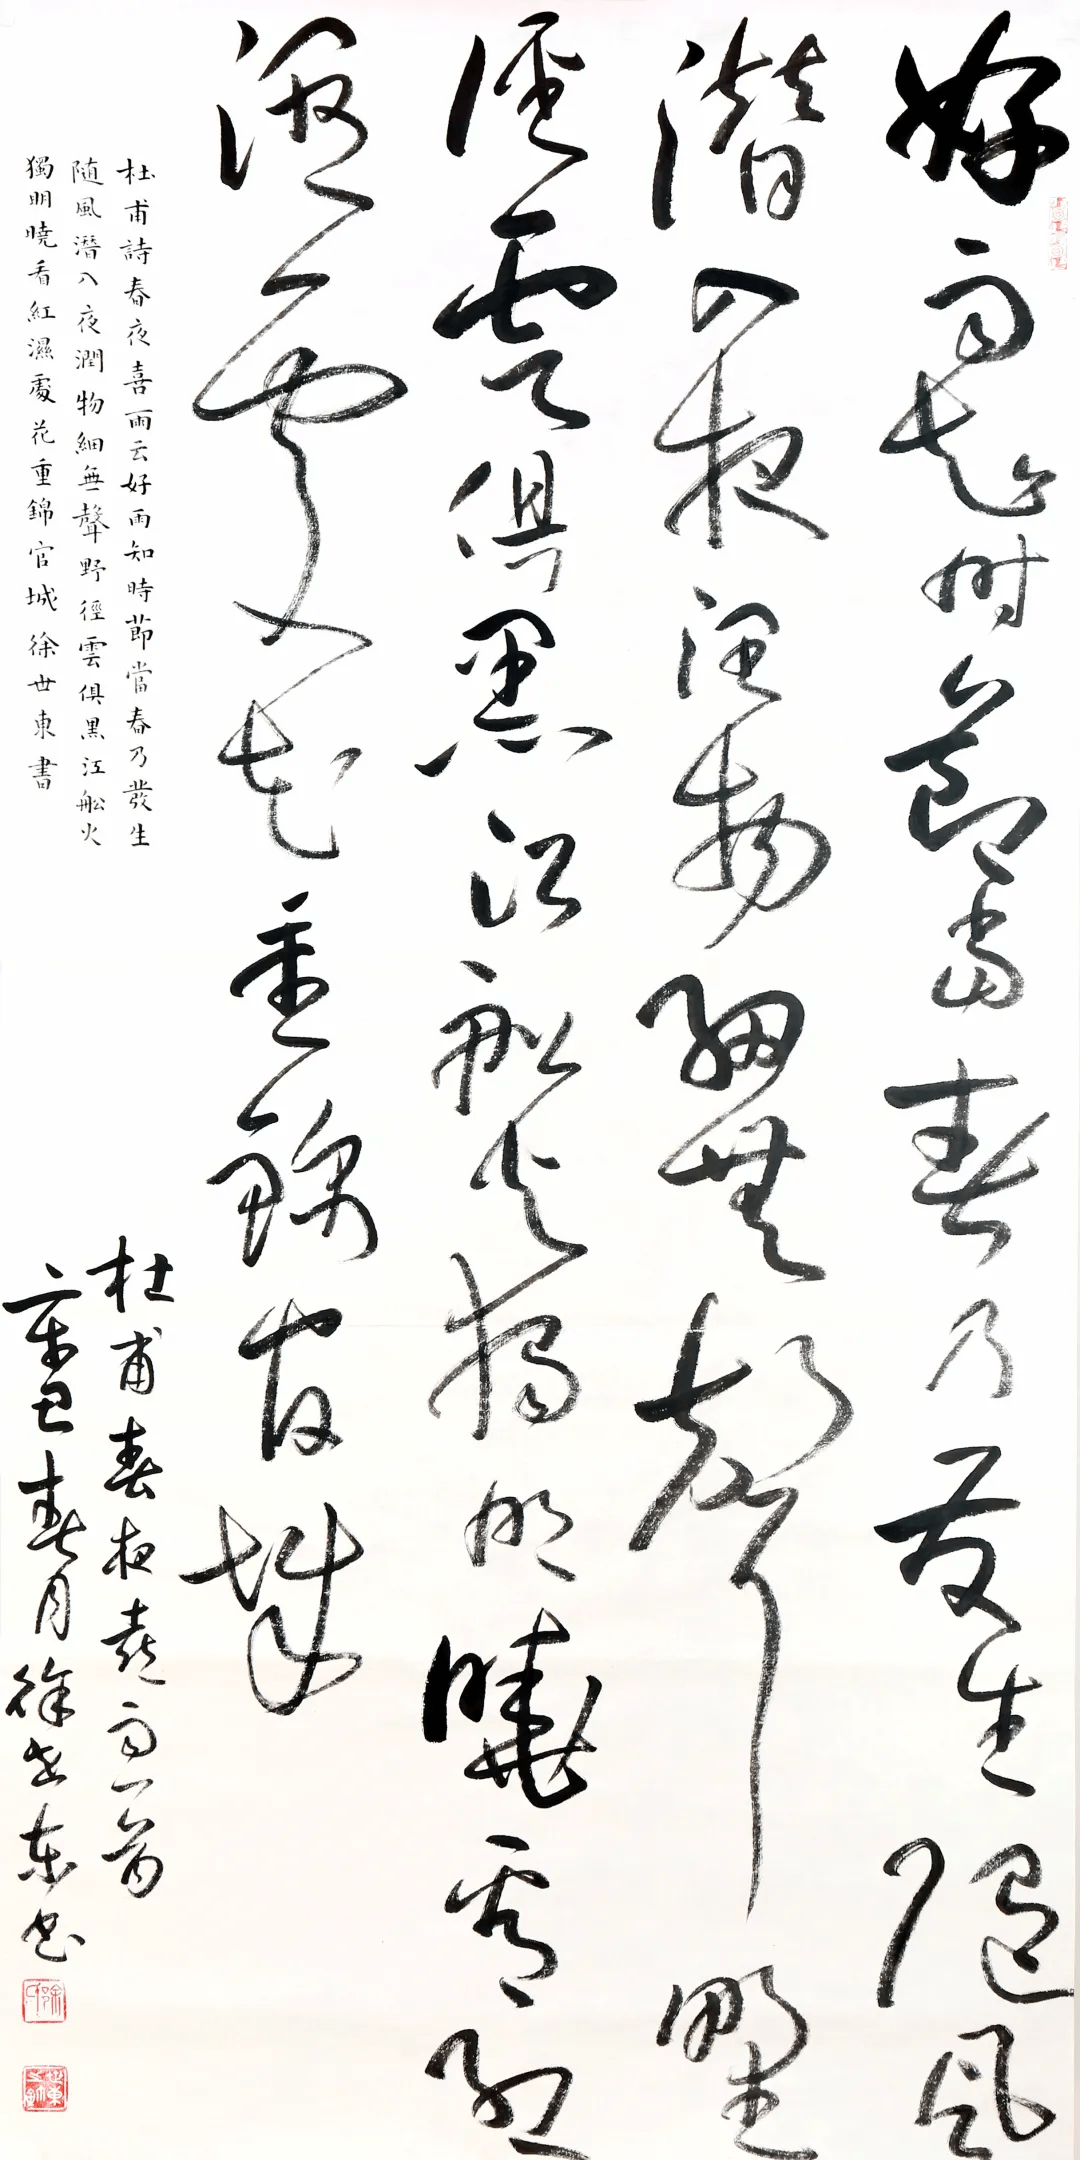 好雨知時節當春乃發生隨風
潛入夜潤物細無聲野
徑雲俱黑江船火獨明曉看紅
濕處花重錦官城
杜甫詩春夜喜雨云好雨知時節當春乃發生
随風潛入夜潤物細無聲野徑雲俱黑江舩火
獨明曉看紅濕處花重錦官城徐世東書
杜甫春夜喜雨一首
辛丑春月徐世东书